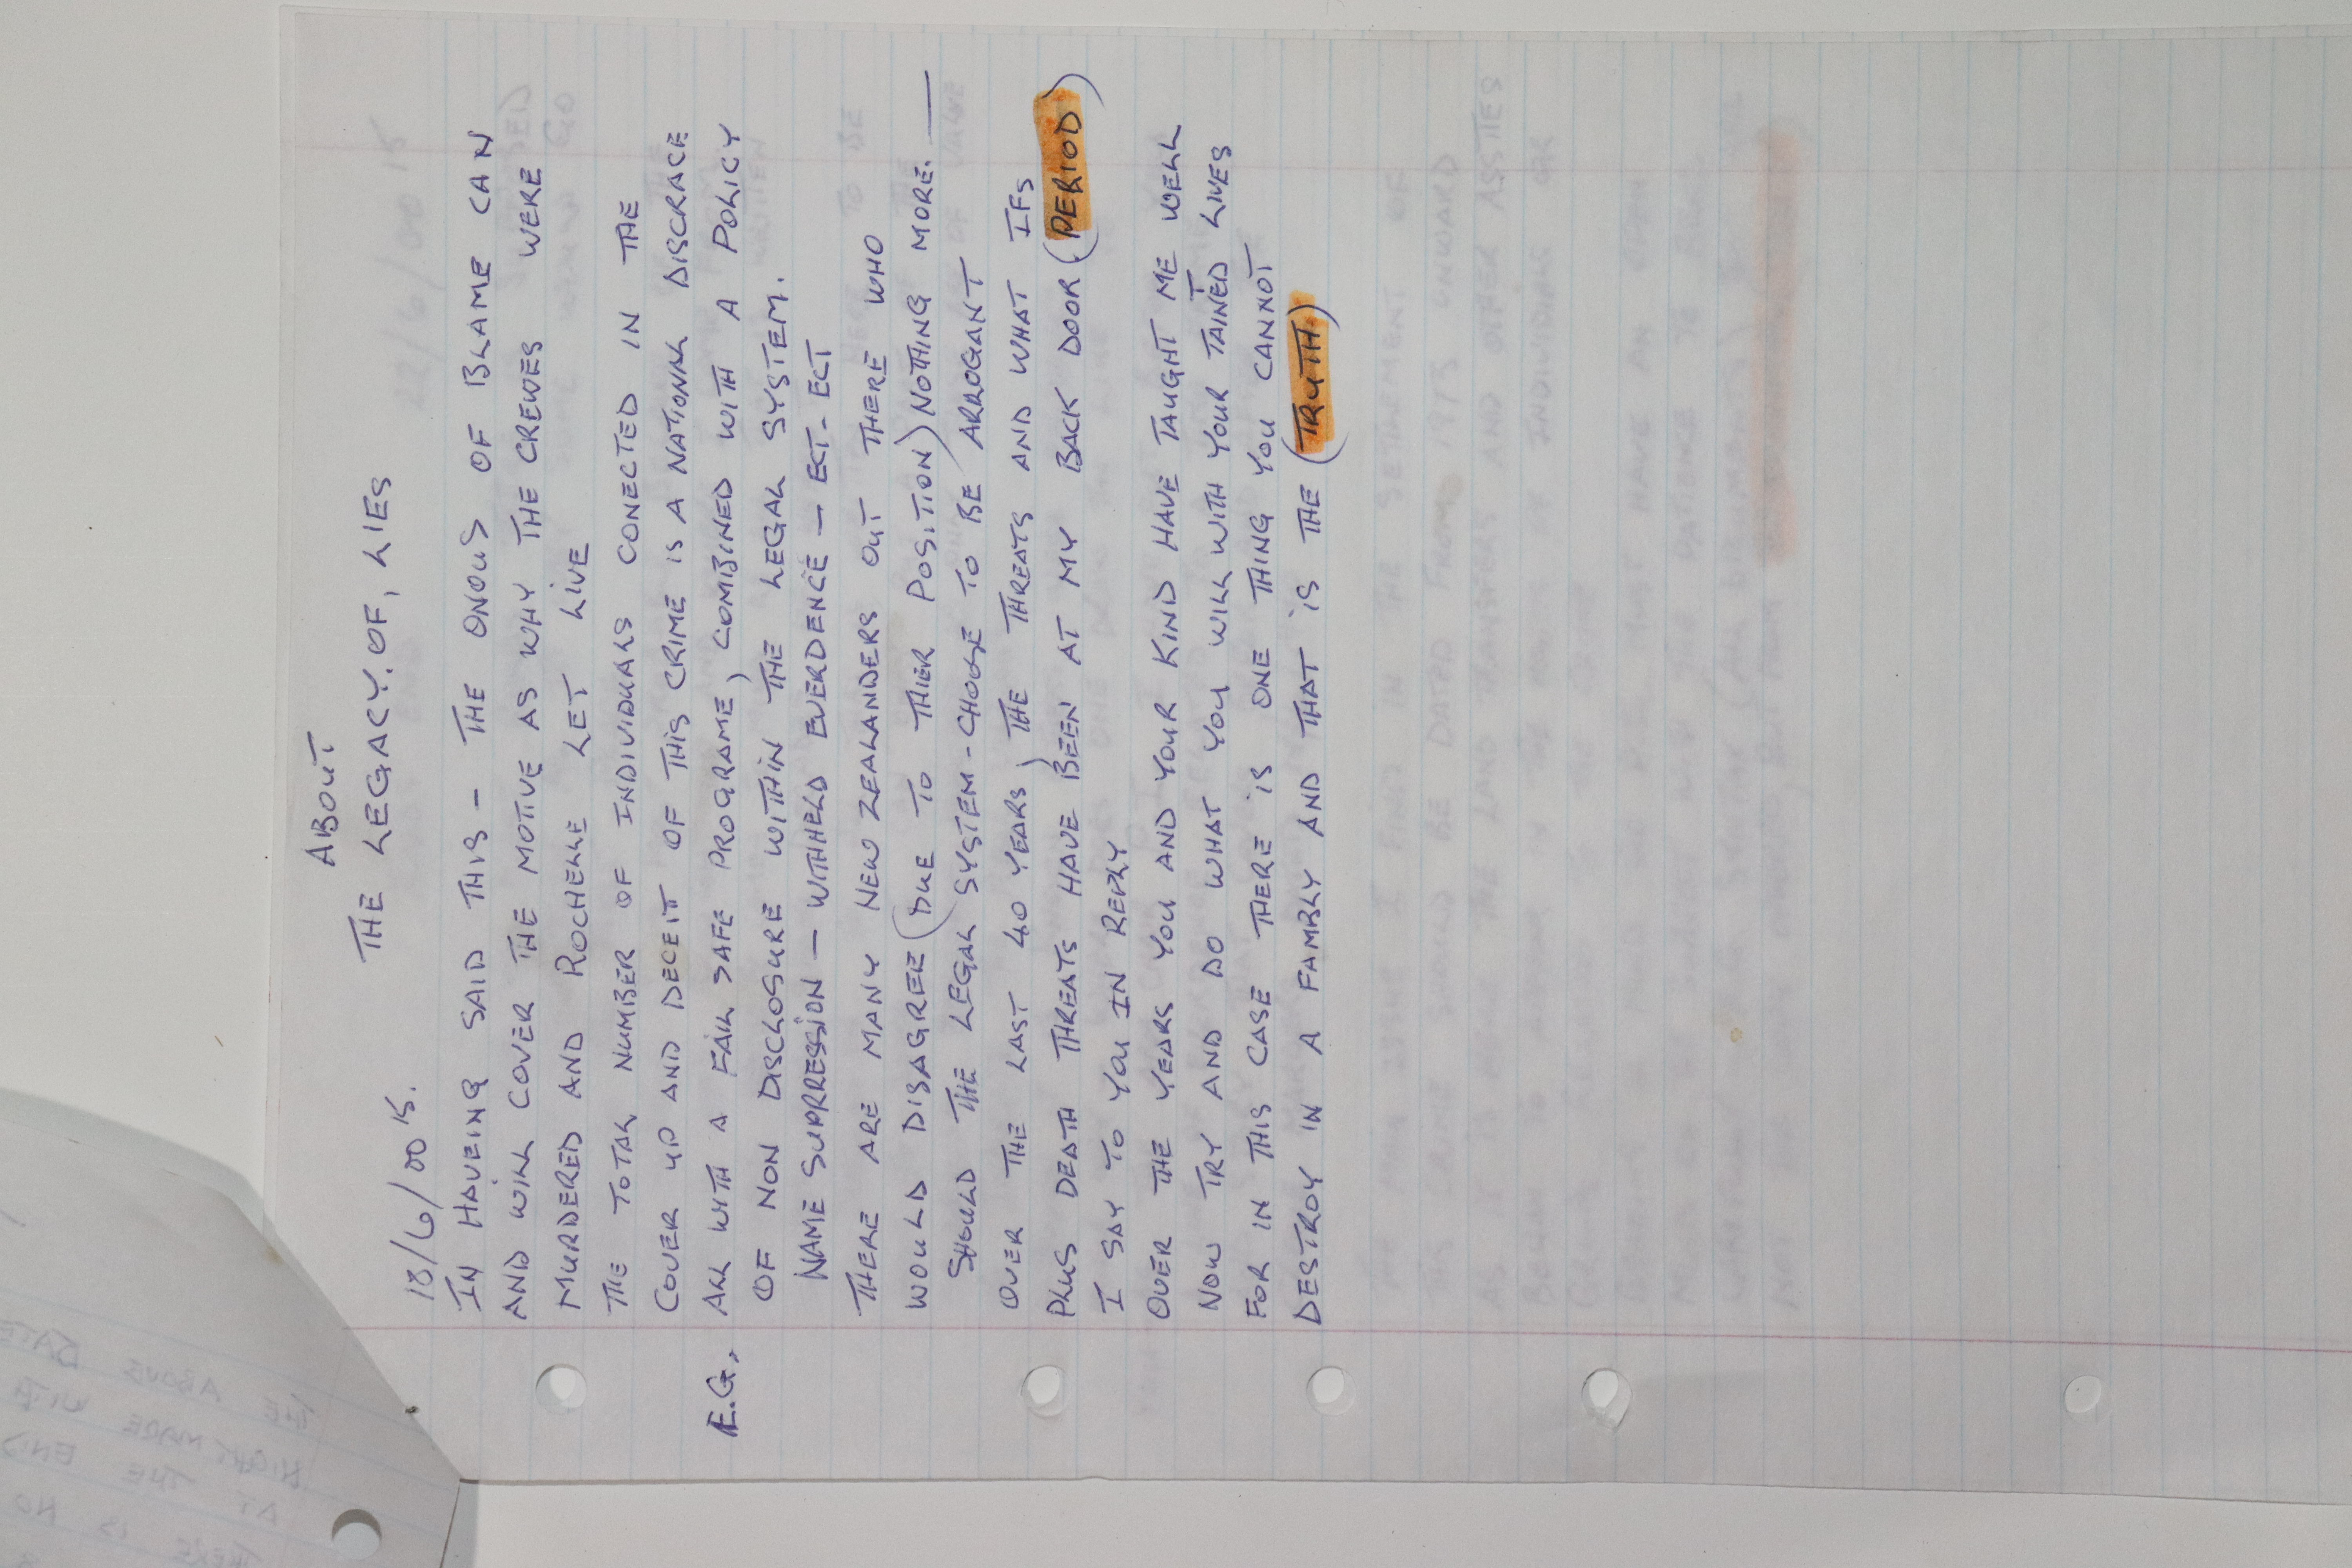 ABOUT
THE LEGACY. OF, LIES
18/6/0015.
IN HAVEING SAID THIS - THE ONOUS OF BLAME CAN
AND WILL COVER THE MOTIVE AS WHY THE CREWES WERE
MURDERED AND ROCHELLE LET LIVE
THE TOTAL NUMBER OF INDIVIDUALS CONECTED IN THE
COVER UP AND DECEIT OF THIS CRIME IS A NATIONAL DISCRACE
E.G. ALL WITH A FAIL SAFE PROGRAME, COMBINED WITH A POLICY
OF NON DISCLOSURE WITHIN THE LEGAL SYSTEM.
NAME SUPRESSION - WITHELD EVERDENCE - ECT- ECT
THERE ARE MANY NEW ZEALANDERS OUT THERE WHO
WOULD DISAGREE (DUE TO THIER POSITION) NOTHING MORE. —
SHOULD THE LEGAL SYSTEM - CHOOSE TO BE ARROGANT
OVER THE LAST 40 YEARS, THE THREATS AND WHAT IFS
PLUS DEATH THREATS HAVE BEEN AT MY BACK DOOR (PERIOD)
I SAY TO YOU IN REPLY
OVER THE YEARS YOU AND YOUR KIND HAVE TAUGHT ME WELL
NOW TRY AND DO WHAT YOU WILL WITH YOUR TAINTED LIVES
FOR IN THIS CASE THERE IS ONE THING YOU CANNOT
DESTROY IN A FAMBLY AND THAT IS THE (TRUTH.)